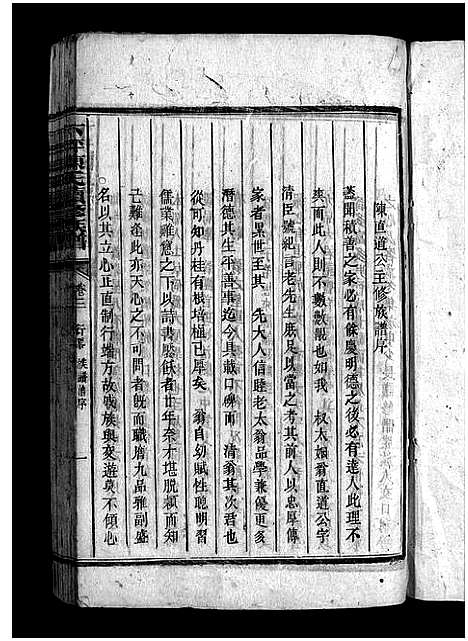 陳直道公主修族譜序
蓋聞積善之家必有餘慶明德之後必有達人此理不
爽而此人則不數數覯也如我 叔太姻翁直道公字
清臣號紀言老先生庶足以當之考其前人以忠厚傳
家者累世至其 先大人信睦老太翁品學兼優更多
潛德其生平善事迄今具載口碑而 清翁其次君也
從可知丹桂有根培植已厚矣 翁自幼賦性聰明習
儒業雞窓之下以詩書饜飫者廿年奈才堪脫穎而知
己難逢此亦天心之不可問者旣而職膺九品雅副盛
名以其立心正直制行端方故戚族與交遊莫不傾心
陳氏續修族譜
卷二
族譜序
一